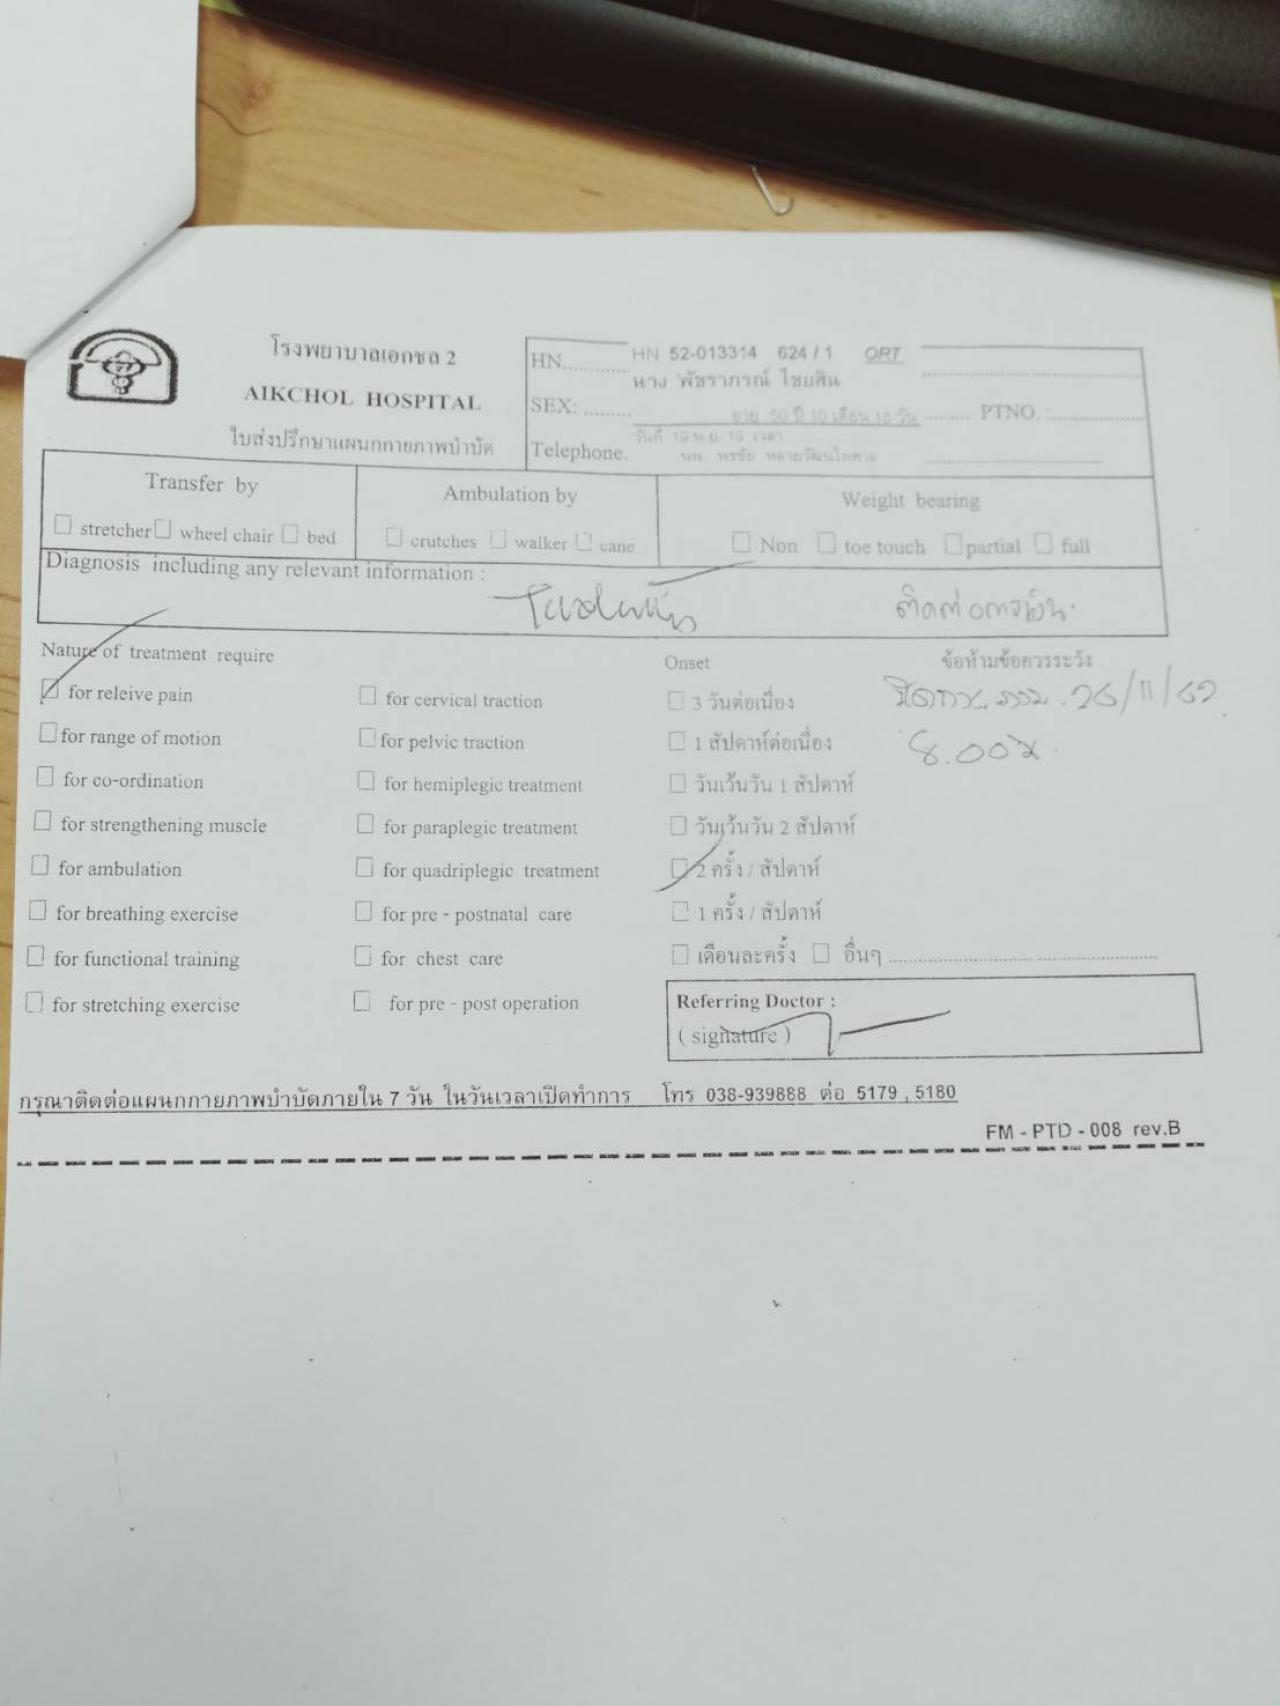 โรงพยาบาลเอกชล 2
AIKCHOL HOSPITAL
ใบส่งปรึกษาแผนกกายภาพบำบัด
HN............ HN 52-013314 624 / 1 ORT
นาง พัชราภรณ์ ไชยสิน
SEX: ......... อายุ 50 ปี 10 เดือน 18 วัน ......... PTNO. :
วันที่ 19 พ.ย. 19 เวลา
Telephone. นพ. พรชัย
Transfer by
☐ stretcher ☐ wheel chair ☐ bed
Ambulation by
☐ crutches ☐ walker ☐ cane
Weight bearing
☐ Non ☐ toe touch ☐ partial ☐ full
Diagnosis including any relevant information :
Nature of treatment require
☑ for releive pain
☐ for range of motion
☐ for co-ordination
☐ for strengthening muscle
☐ for ambulation
☐ for breathing exercise
☐ for functional training
☐ for stretching exercise
☐ for cervical traction
☐ for pelvic traction
☐ for hemiplegic treatment
☐ for paraplegic treatment
☐ for quadriplegic treatment
☐ for pre - postnatal care
☐ for chest care
☐ for pre - post operation
Onset
☐ 3 วันต่อเนื่อง
☐ 1 สัปดาห์ต่อเนื่อง
☐ วันเว้นวัน 1 สัปดาห์
☐ วันเว้นวัน 2 สัปดาห์
☑ 2 ครั้ง / สัปดาห์
☐ 1 ครั้ง / สัปดาห์
☐ เดือนละครั้ง ☐ อื่นๆ
ข้อห้ามข้อควรระวัง
26/11/62
8.00น.
Referring Doctor :
( signature )
กรุณาติดต่อแผนกกายภาพบำบัดภายใน 7 วัน ในวันเวลาเปิดทำการ โทร 038-939888 ต่อ 5179 , 5180
FM - PTD - 008 rev.B